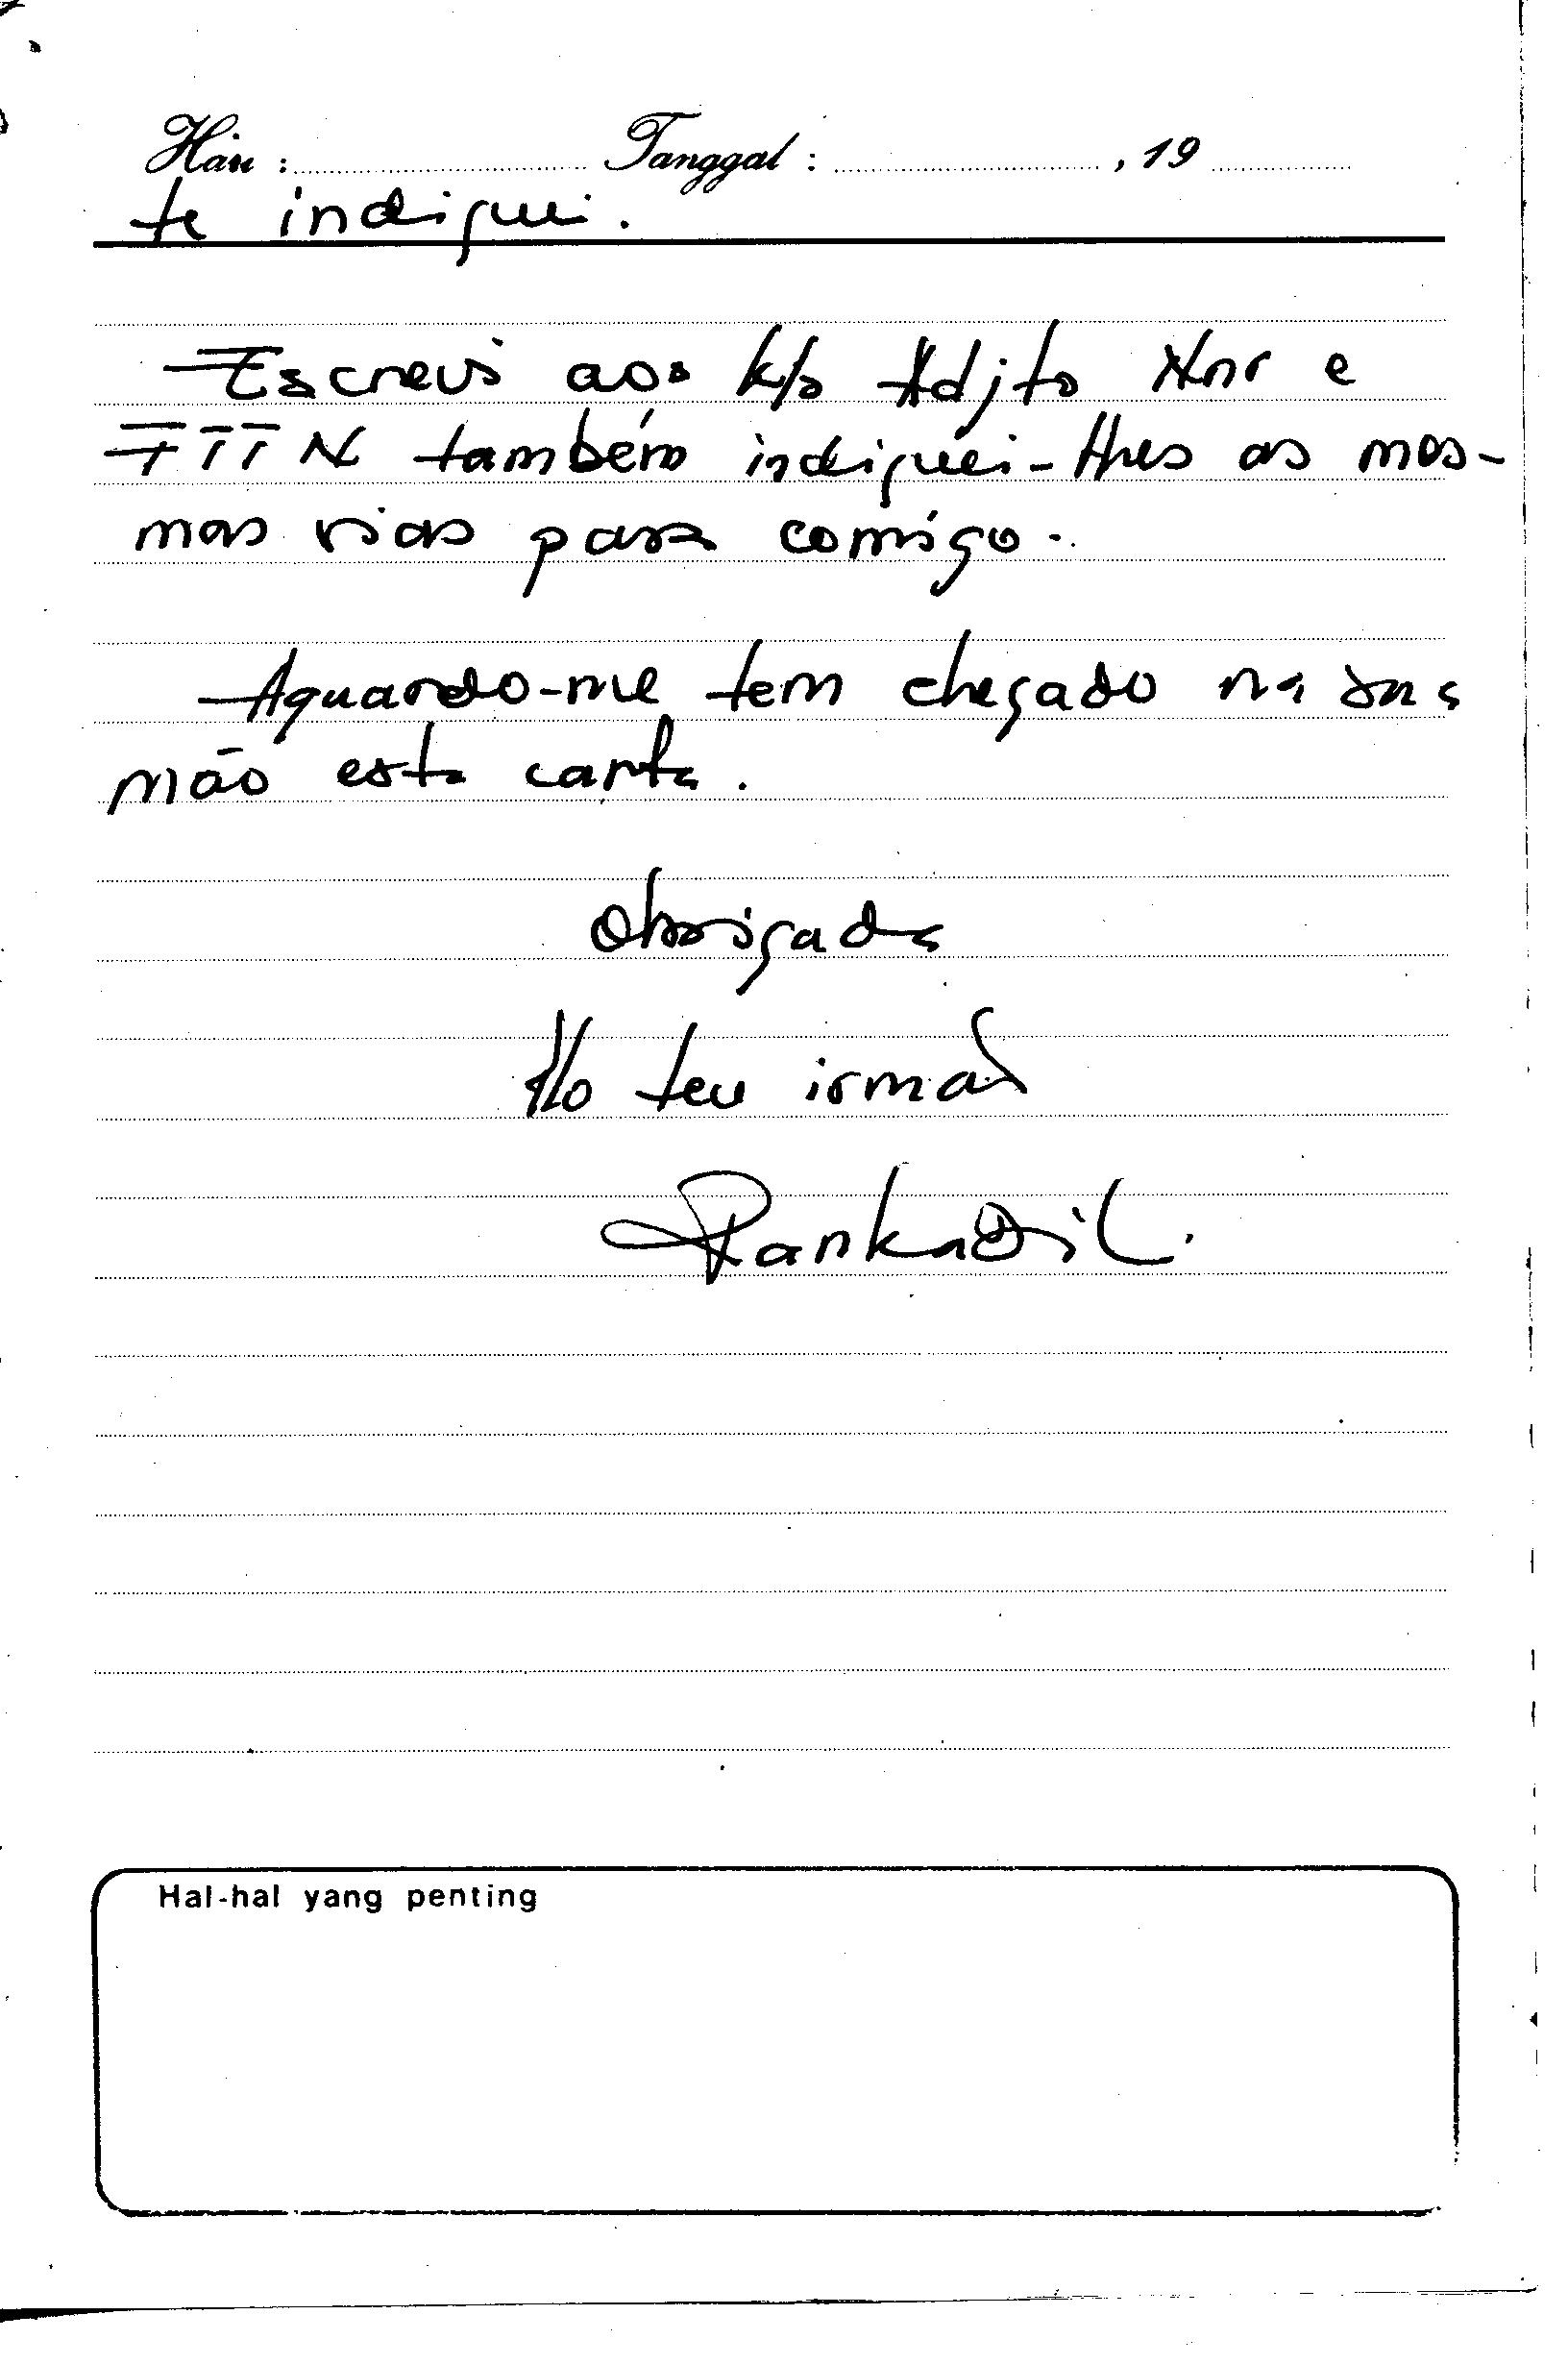 Hari : Tanggal : , 19
te indiquei.
Escrevi aos k/s Adjto Nnr e
FITN também indiquei-lhes as mes-
mas vias para comigo.
Aguardo-me tem chegado na sua
mão esta carta.
Obrigado
Do teu irmão
Hal-hal yang penting